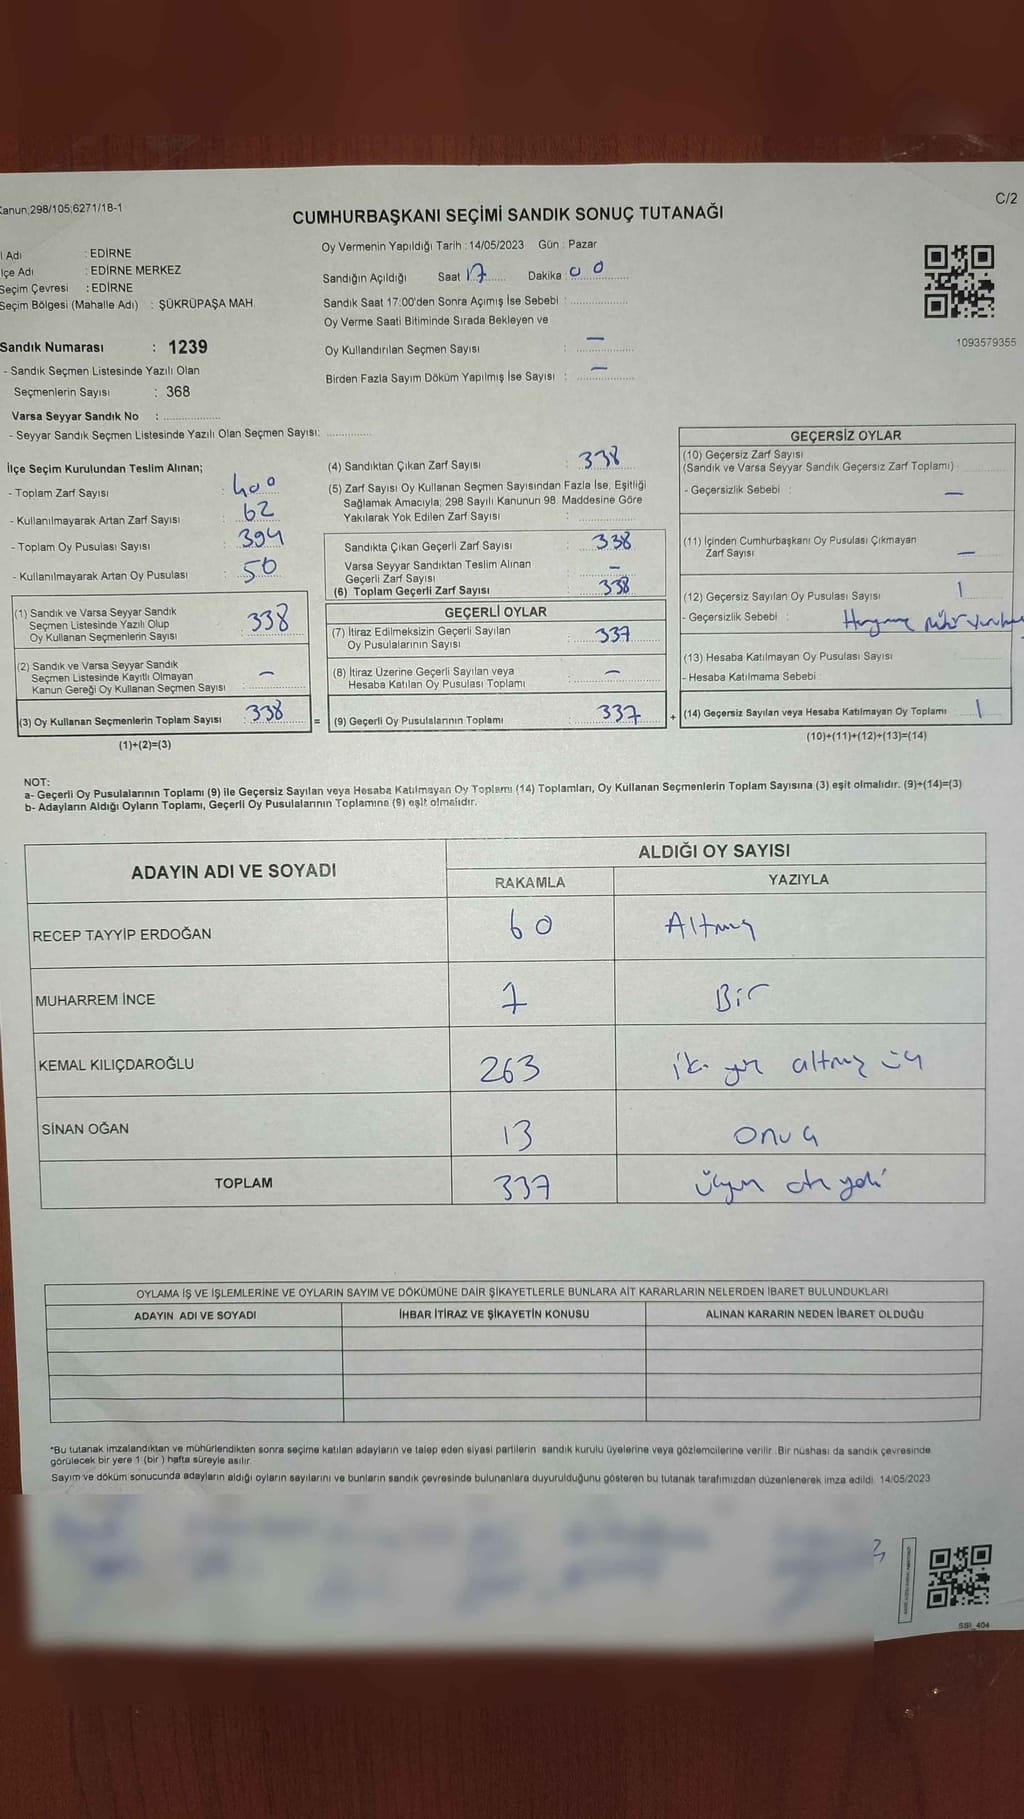 Kanun;298/105;6271/18-1
C/2
CUMHURBAŞKANI SEÇİMİ SANDIK SONUÇ TUTANAĞI
l Adı : EDİRNE
lçe Adı : EDİRNE MERKEZ
Seçim Çevresi : EDİRNE
Seçim Bölgesi (Mahalle Adı) : ŞÜKRÜPAŞA MAH.
Sandık Numarası : 1239
- Sandık Seçmen Listesinde Yazılı Olan
Seçmenlerin Sayısı : 368
Varsa Seyyar Sandık No :
- Seyyar Sandık Seçmen Listesinde Yazılı Olan Seçmen Sayısı:
Oy Vermenin Yapıldığı Tarih : 14/05/2023 Gün : Pazar
Sandığın Açıldığı Saat 17 Dakika 00
Sandık Saat 17:00'den Sonra Açımış İse Sebebi :
Oy Verme Saati Bitiminde Sırada Bekleyen ve
Oy Kullandırılan Seçmen Sayısı : —
Birden Fazla Sayım Döküm Yapılmış İse Sayısı : —
1093579355
İlçe Seçim Kurulundan Teslim Alınan;
- Toplam Zarf Sayısı : 400
- Kullanılmayarak Artan Zarf Sayısı : 62
- Toplam Oy Pusulası Sayısı : 394
- Kullanılmayarak Artan Oy Pusulası : 50
(1) Sandık ve Varsa Seyyar Sandık
Seçmen Listesinde Yazılı Olup
Oy Kullanan Seçmenlerin Sayısı : 338
(2) Sandık ve Varsa Seyyar Sandık
Seçmen Listesinde Kayıtlı Olmayan
Kanun Gereği Oy Kullanan Seçmen Sayısı : —
(3) Oy Kullanan Seçmenlerin Toplam Sayısı : 338
(1)+(2)=(3)
(4) Sandıktan Çıkan Zarf Sayısı : 338
(5) Zarf Sayısı Oy Kullanan Seçmen Sayısından Fazla İse, Eşitliği
Sağlamak Amacıyla; 298 Sayılı Kanunun 98. Maddesine Göre
Yakılarak Yok Edilen Zarf Sayısı :
Sandıkta Çıkan Geçerli Zarf Sayısı : 338
Varsa Seyyar Sandıktan Teslim Alınan
Geçerli Zarf Sayısı : —
(6) Toplam Geçerli Zarf Sayısı : 338
GEÇERLİ OYLAR
(7) İtiraz Edilmeksizin Geçerli Sayılan
Oy Pusulalarının Sayısı : 337
(8) İtiraz Üzerine Geçerli Sayılan veya
Hesaba Katılan Oy Pusulası Toplamı : —
= (9) Geçerli Oy Pusulalarının Toplamı : 337
GEÇERSİZ OYLAR
(10) Geçersiz Zarf Sayısı
(Sandık ve Varsa Seyyar Sandık Geçersiz Zarf Toplamı)
- Geçersizlik Sebebi : —
(11) İçinden Cumhurbaşkanı Oy Pusulası Çıkmayan
Zarf Sayısı —
(12) Geçersiz Sayılan Oy Pusulası Sayısı 1
- Geçersizlik Sebebi :
(13) Hesaba Katılmayan Oy Pusulası Sayısı
- Hesaba Katılmama Sebebi
+ (14) Geçersiz Sayılan veya Hesaba Katılmayan Oy Toplamı 1
(10)+(11)+(12)+(13)=(14)
NOT:
a- Geçerli Oy Pusulalarının Toplamı (9) ile Geçersiz Sayılan veya Hesaba Katılmayan Oy Toplamı (14) Toplamları, Oy Kullanan Seçmenlerin Toplam Sayısına (3) eşit olmalıdır. (9)+(14)=(3)
b- Adayların Aldığı Oyların Toplamı, Geçerli Oy Pusulalarının Toplamına (9) eşit olmalıdır.
ADAYIN ADI VE SOYADI
ALDIĞI OY SAYISI
RAKAMLA YAZIYLA
RECEP TAYYİP ERDOĞAN 60 Altmış
MUHARREM İNCE 1 Bir
KEMAL KILIÇDAROĞLU 263 iki yüz altmış üç
SİNAN OĞAN 13 onüç
TOPLAM 337 üçyüz otuz yedi
OYLAMA İŞ VE İŞLEMLERİNE VE OYLARIN SAYIM VE DÖKÜMÜNE DAİR ŞİKAYETLERLE BUNLARA AİT KARARLARIN NELERDEN İBARET BULUNDUKLARI
ADAYIN ADI VE SOYADI İHBAR İTİRAZ VE ŞİKAYETİN KONUSU ALINAN KARARIN NEDEN İBARET OLDUĞU
*Bu tutanak imzalandıktan ve mühürlendikten sonra seçime katılan adayların ve talep eden siyasi partilerin sandık kurulu üyelerine veya gözlemcilerine verilir .Bir nüshası da sandık çevresinde
görülecek bir yere 1 (bir ) hafta süreyle asılır.
Sayım ve döküm sonucunda adayların aldığı oyların sayılarını ve bunların sandık çevresinde bulunanlara duyurulduğunu gösteren bu tutanak tarafımızdan düzenlenerek imza edildi. 14/05/2023
SSI_404